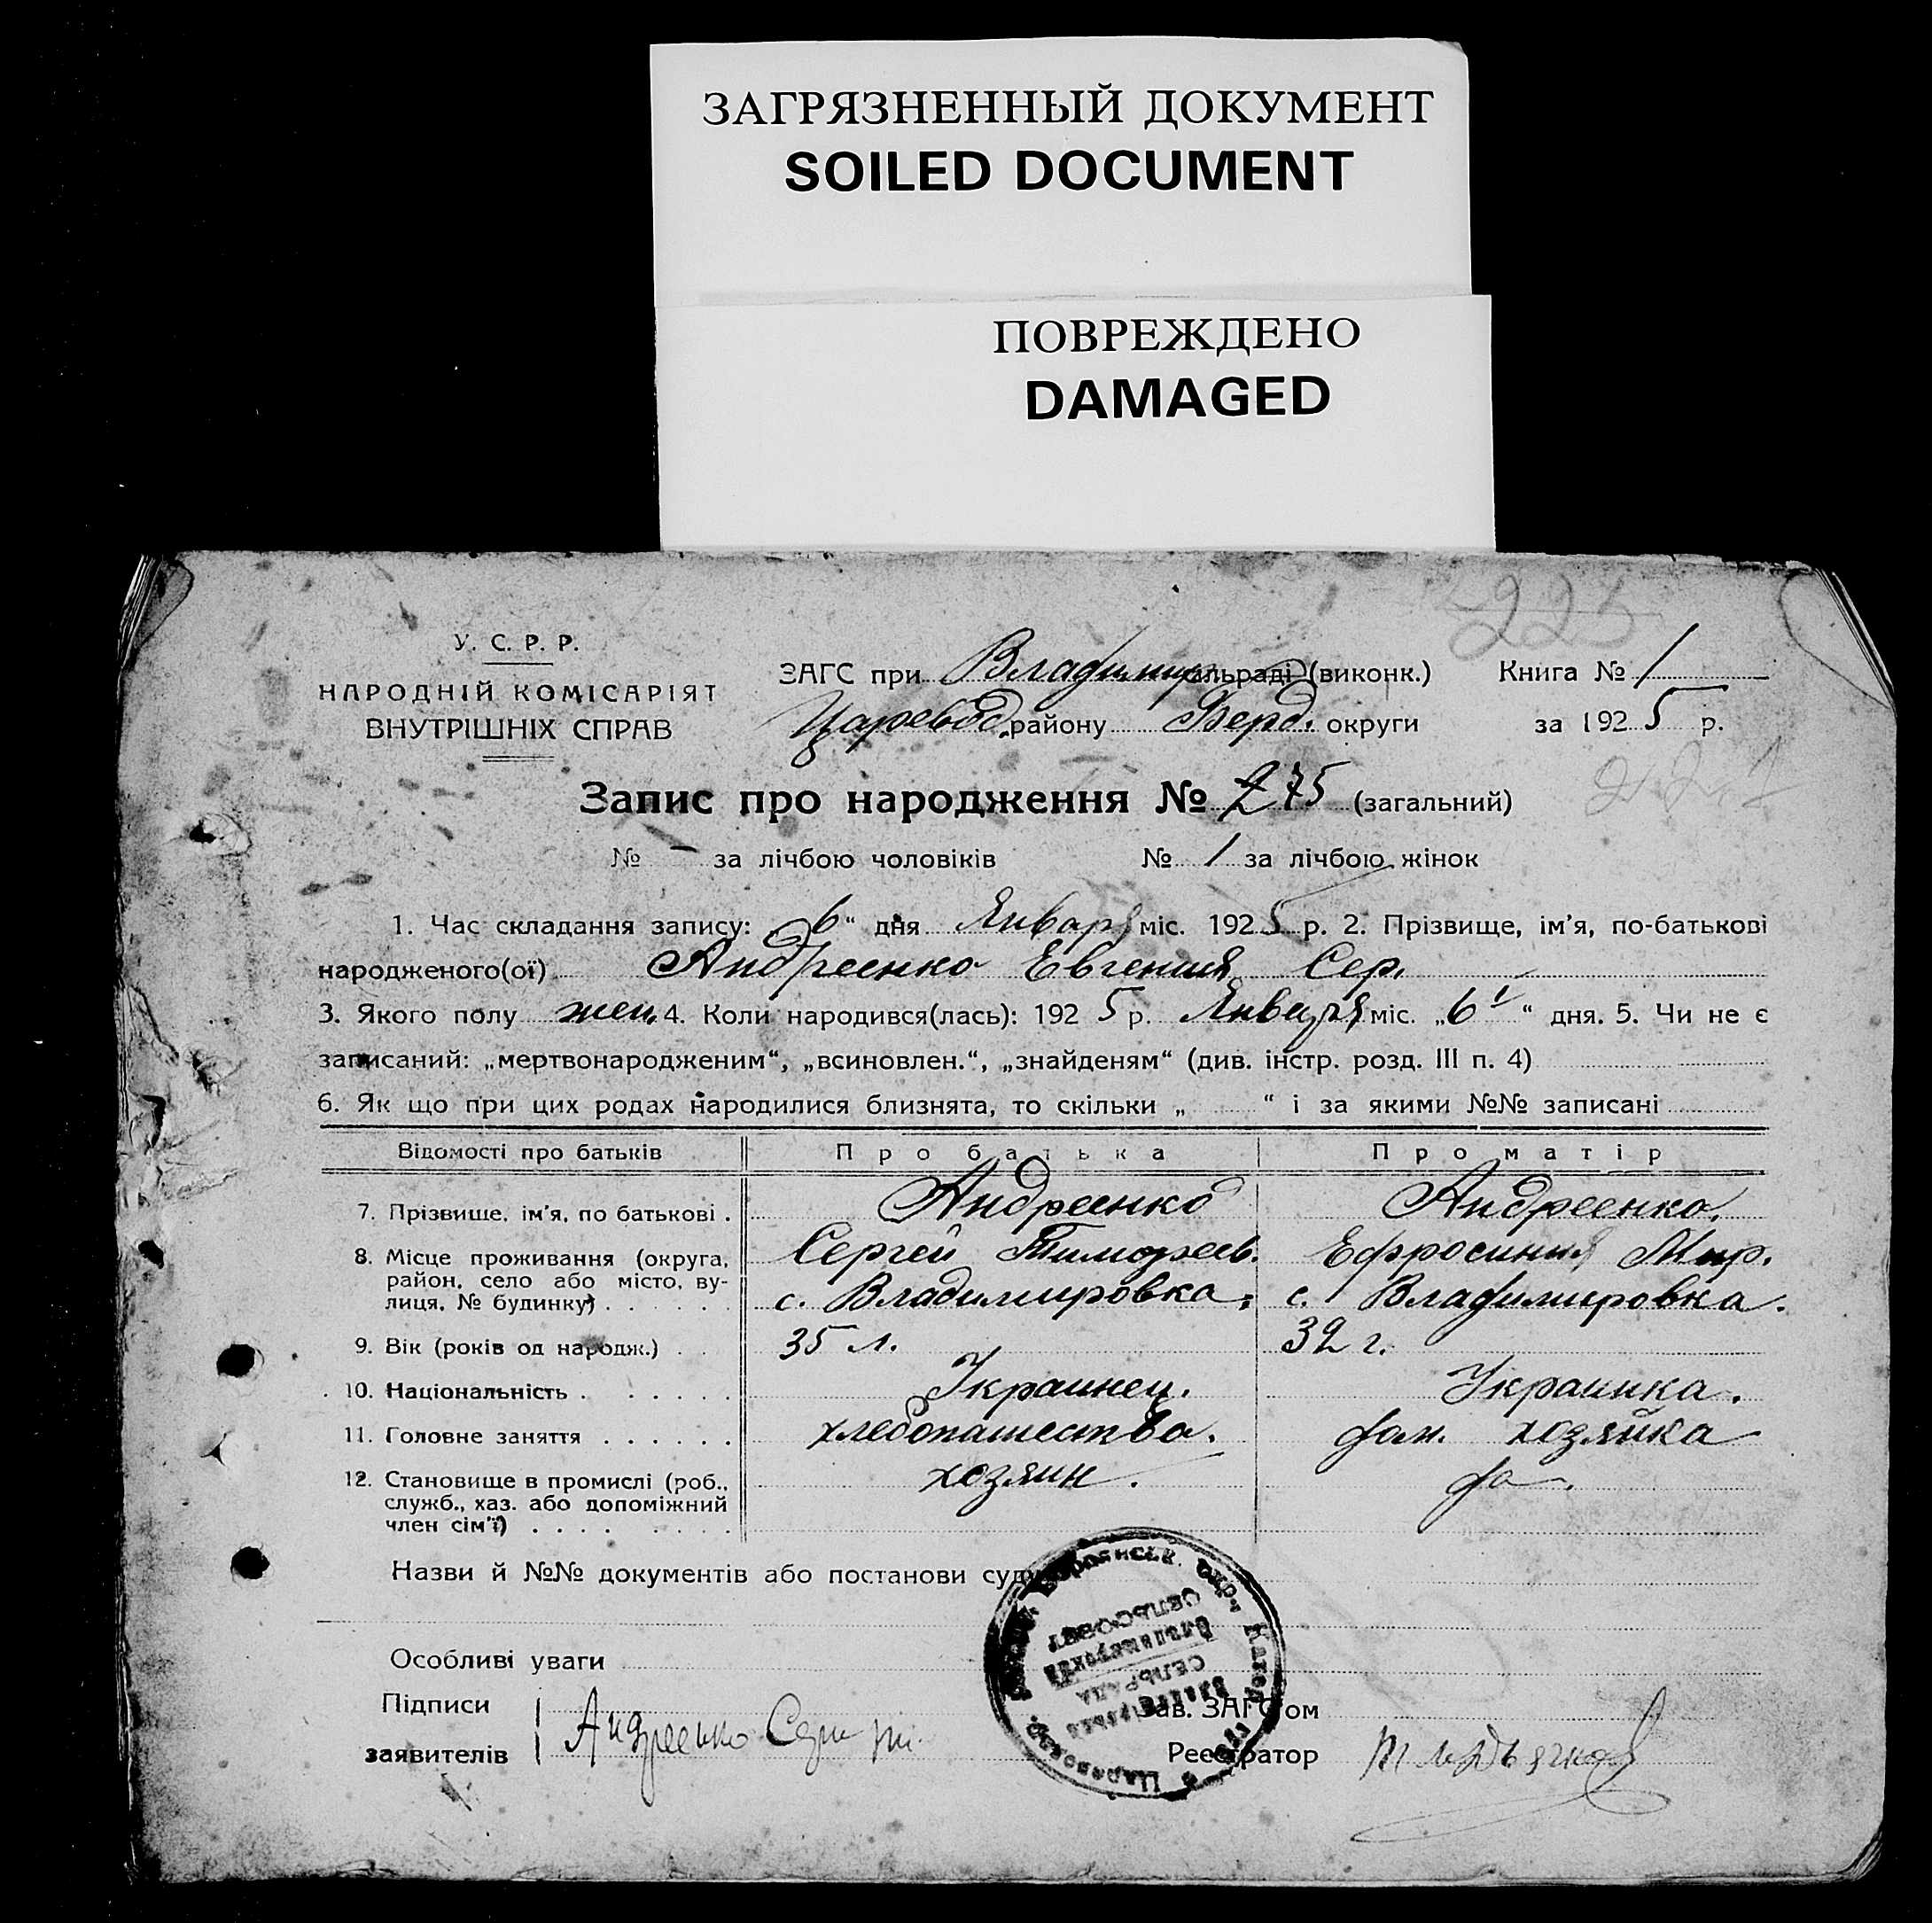 ЗАГРЯЗНЕННЫЙ ДОКУМЕНТ
SOILED DOCUMENT
ПОВРЕЖДЕНО
DAMAGED
У. С. Р. Р.
НАРОДНІЙ КОМІСАРІЯТ
ВНУТРІШНІХ СПРАВ
ЗАГС при Владимир сільраді (виконк.)
Царевод. району Берд. округи
Книга № 1
за 1925 р.
Запис про народження № 275 (загальний)
№ - за лічбою чоловіків № 1 за лічбою жінок
1. Час складання запису: „6“ дня Января міс. 1925 р. 2. Прізвище, ім'я, по-батькові
народженого(ої) Андреенко Евгения Сер.
3. Якого полу жен. 4. Коли народився(лась): 1925 р. Января міс. „6“ дня. 5. Чи не є
записаний: „мертвонародженим“, „всиновлен.“, „знайденям“ (див. інстр. розд. III п. 4)
6. Як що при цих родах народилися близнята, то скільки „ “ і за якими №№ записані
Відомості про батьків Про батька Про матір
7. Прізвище, ім'я, по батькові . Андреенко Андреенко.
8. Місце проживання (округа, район, село або місто, вулиця, № будинку) . Сергей Тимофеев. Ефросиния Мир.
с. Владимировка. с. Владимировка.
9. Вік (років од народж.) . . 35 л. 32 г.
10. Національність . Украинец. Украинка.
11. Головне заняття . хлебопашество. дом. хозяйка
12. Становище в промислі (роб., служб., хаз. або допоміжний член сім'ї) . хозяин.
Назви й №№ документів або постанови суду
Особливі уваги
Підписи
заявителів
Андреенко
Зав. ЗАГС'ом
Реєстратор